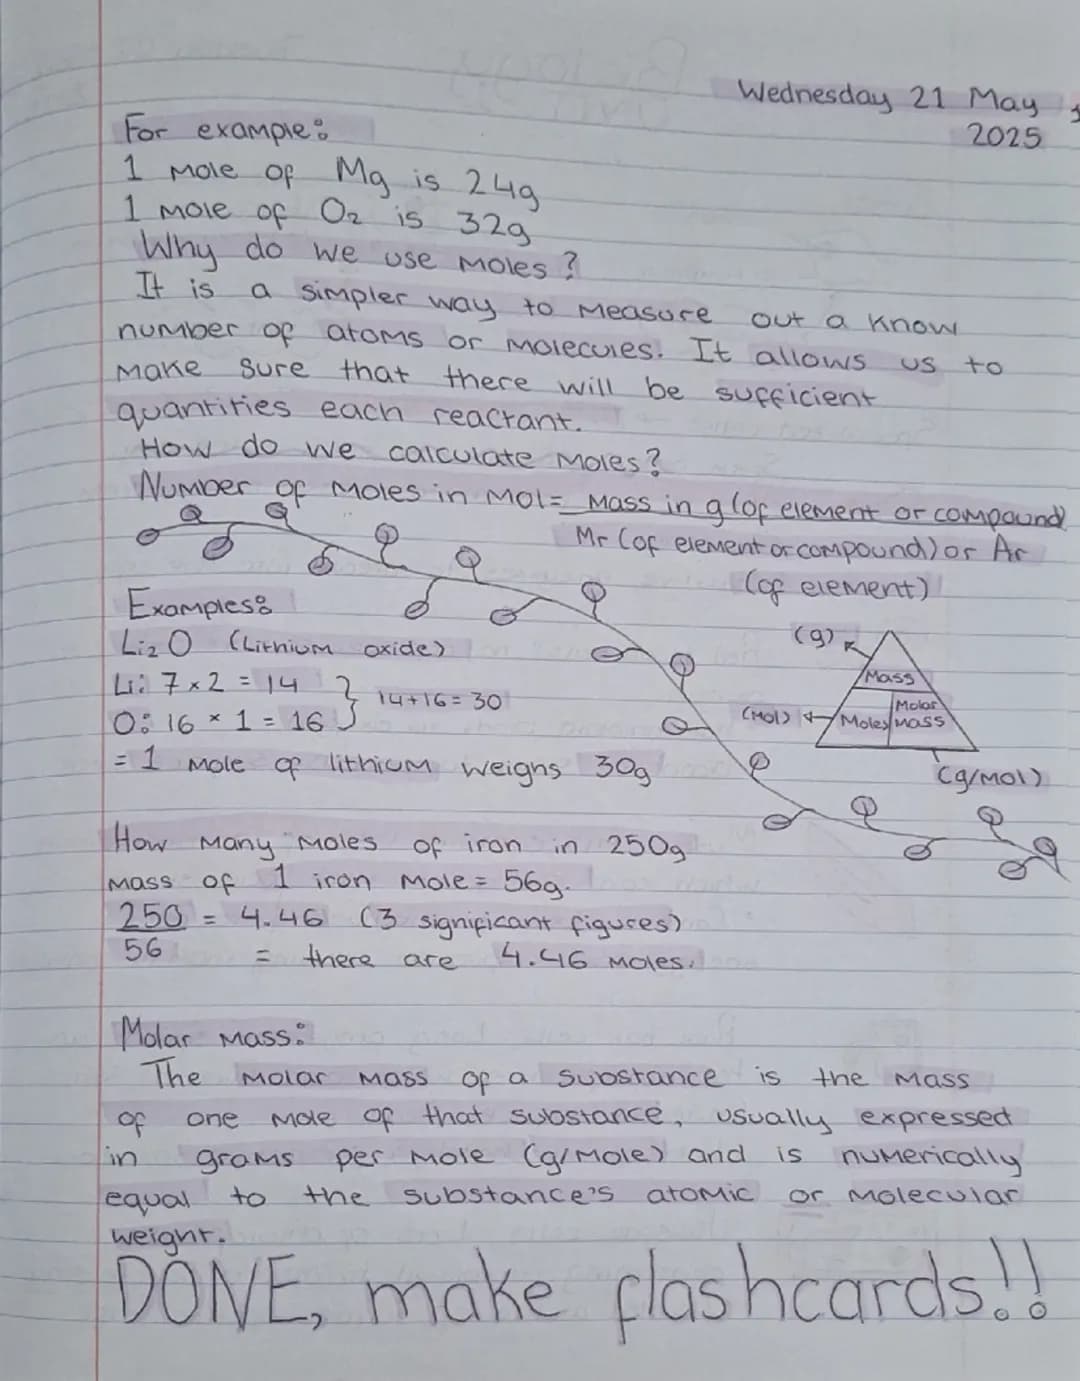 Wednesday 21 May
2025
For example:
1 mole of Mg is 24g
1 mole of O₂ is 32g
Why do we use moles?
It is a simpler way to measure out a know
number of atoms or molecules. It allows us to
make sure that there will be sufficient
quantities each reactant.
How do we calculate moles?
Number of moles in mol = mass in g (of element or compound)
Mr (of element or compound) or Ar
(of element)
Examples:
Li₂O (Lithium oxide)
Li: 7 × 2 = 14
O: 16 × 1 = 16
} 14+16 = 30
= 1 mole of lithium weighs 30g
(g)
Mass
(mol)
Moles
Molar
mass
(g/mol)
How many moles of iron in 250g
mass of 1 iron mole = 56g.
250 = 4.46 (3 significant figures)
56
= there are 4.46 moles.
Molar mass:
The molar mass of a substance is the mass
of one mole of that substance, usually expressed
in grams per mole (g/mole) and is numerically
equal to the substance's atomic or molecular
weight.
DONE, make flashcards!!